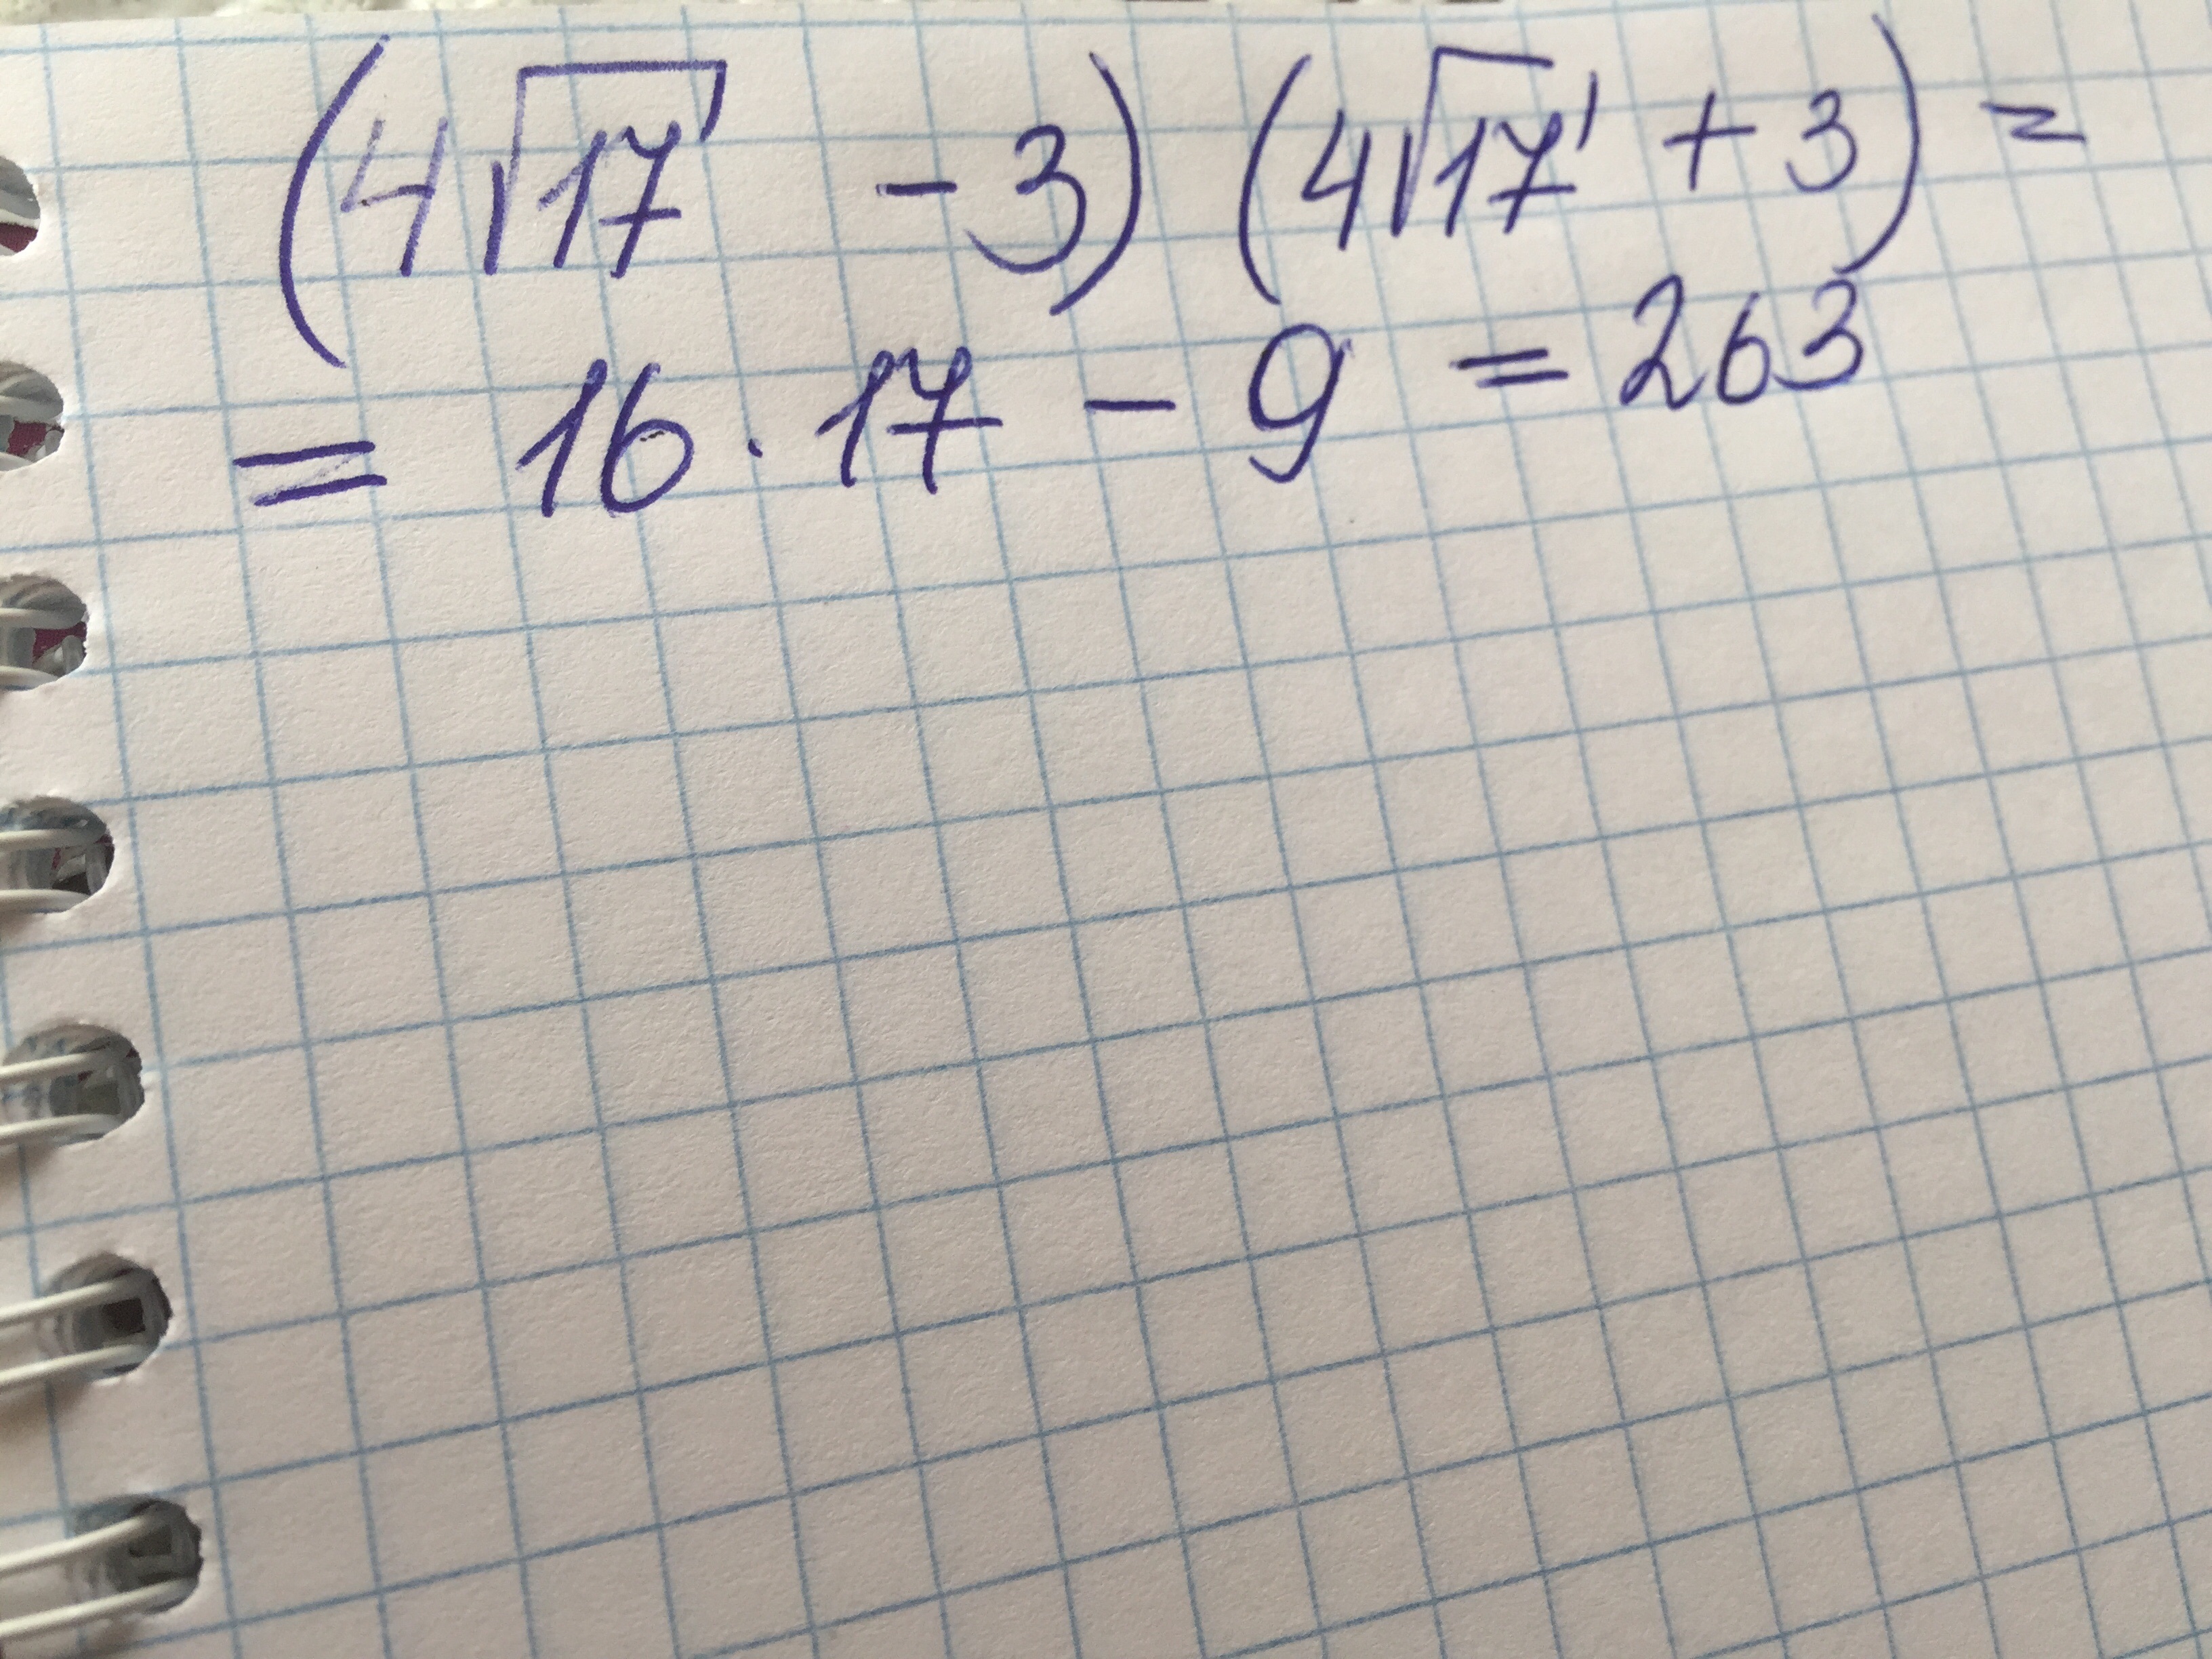 (4√17 - 3) (4√17 + 3) =
= 16 · 17 - 9 = 263